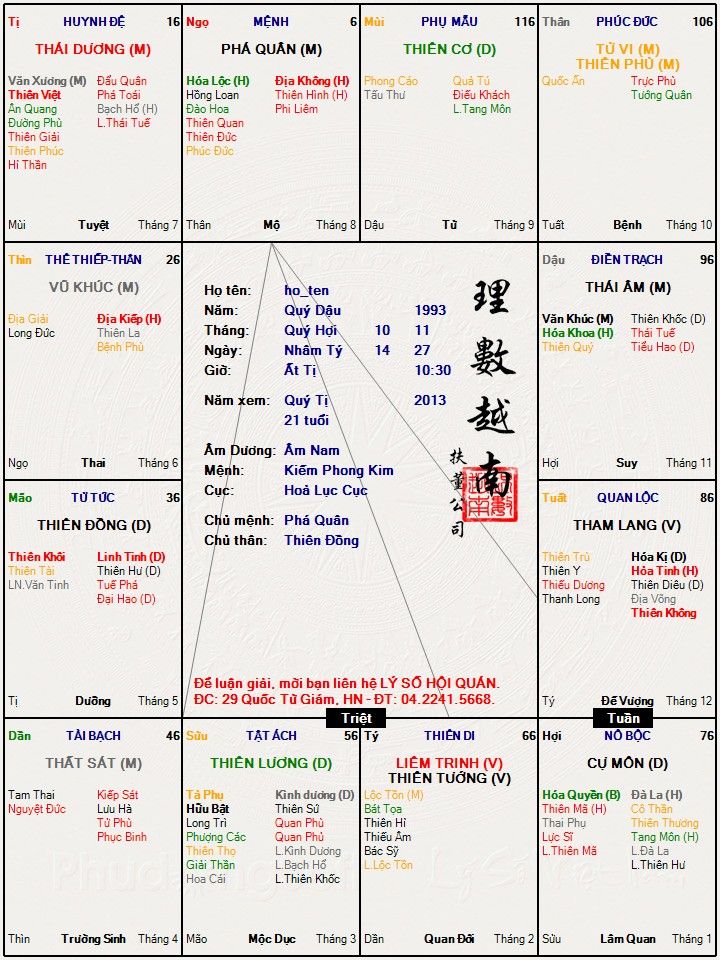 Tị HUYNH ĐỆ 16
THÁI DƯƠNG (M)
Văn Xương (M) Đẩu Quân
Thiên Việt Phá Toái
Ân Quang Bạch Hổ (H)
Đường Phù L.Thái Tuế
Thiên Giải
Thiên Phúc
Hỉ Thần
Mùi Tuyệt Tháng 7
Ngọ MỆNH 6
PHÁ QUÂN (M)
Hóa Lộc (H) Địa Không (H)
Hồng Loan Thiên Hình (H)
Đào Hoa Phi Liêm
Thiên Quan
Thiên Đức
Phúc Đức
Thân Mộ Tháng 8
Mùi PHỤ MẪU 116
THIÊN CƠ (D)
Phong Cáo Quả Tú
Tấu Thư Điếu Khách
L.Tang Môn
Dậu Tử Tháng 9
Thân PHÚC ĐỨC 106
TỬ VI (M)
THIÊN PHỦ (M)
Quốc Ấn Trực Phù
Tướng Quân
Tuất Bệnh Tháng 10
Thìn THÊ THIẾP-THÂN 26
VŨ KHÚC (M)
Địa Giải Địa Kiếp (H)
Long Đức Thiên La
Bệnh Phù
Ngọ Thai Tháng 6
Họ tên: ho_ten
Năm: Quý Dậu 1993
Tháng: Quý Hợi 10 11
Ngày: Nhâm Tý 14 27
Giờ: Ất Tị 10:30
Năm xem: Quý Tị 2013
21 tuổi
Âm Dương: Âm Nam
Mệnh: Kiếm Phong Kim
Cục: Hoả Lục Cục
Chủ mệnh: Phá Quân
Chủ thân: Thiên Đồng
理數越南
扶董公司
Để luận giải, mời bạn liên hệ LÝ SỐ HỘI QUÁN.
ĐC: 29 Quốc Tử Giám, HN - ĐT: 04.2241.5668.
Dậu ĐIỀN TRẠCH 96
THÁI ÂM (M)
Văn Khúc (M) Thiên Khốc (D)
Hóa Khoa (H) Thái Tuế
Thiên Quý Tiểu Hao (D)
Hợi Suy Tháng 11
Mão TỬ TỨC 36
THIÊN ĐỒNG (D)
Thiên Khôi Linh Tinh (D)
Thiên Tài Thiên Hư (D)
LN.Văn Tinh Tuế Phá
Đại Hao (D)
Tị Dưỡng Tháng 5
Tuất QUAN LỘC 86
THAM LANG (V)
Thiên Trù Hóa Kị (D)
Thiên Y Hỏa Tinh (H)
Thiếu Dương Thiên Diêu (D)
Thanh Long Địa Võng
Thiên Không
Tý Đế Vượng Tháng 12
Triệt
Tuần
Dần TÀI BẠCH 46
THẤT SÁT (M)
Tam Thai Kiếp Sát
Nguyệt Đức Lưu Hà
Tử Phù
Phục Binh
Thìn Trường Sinh Tháng 4
Sửu TẬT ÁCH 56
THIÊN LƯƠNG (D)
Tả Phụ Kình dương (D)
Hữu Bật Thiên Sứ
Long Trì Quan Phù
Phượng Các Quan Phủ
Thiên Thọ L.Kình Dương
Giải Thần L.Bạch Hổ
Hoa Cái L.Thiên Khốc
Mão Mộc Dục Tháng 3
Tý THIÊN DI 66
LIÊM TRINH (V)
THIÊN TƯỚNG (V)
Lộc Tồn (M)
Bát Tọa
Thiên Hỉ
Thiếu Âm
Bác Sỹ
L.Lộc Tồn
Dần Quan Đới Tháng 2
Hợi NÔ BỘC 76
CỰ MÔN (D)
Hóa Quyền (B) Đà La (H)
Thiên Mã (H) Cô Thần
Thai Phụ Thiên Thương
Lực Sĩ Tang Môn (H)
L.Thiên Mã L.Đà La
L.Thiên Hư
Sửu Lâm Quan Tháng 1